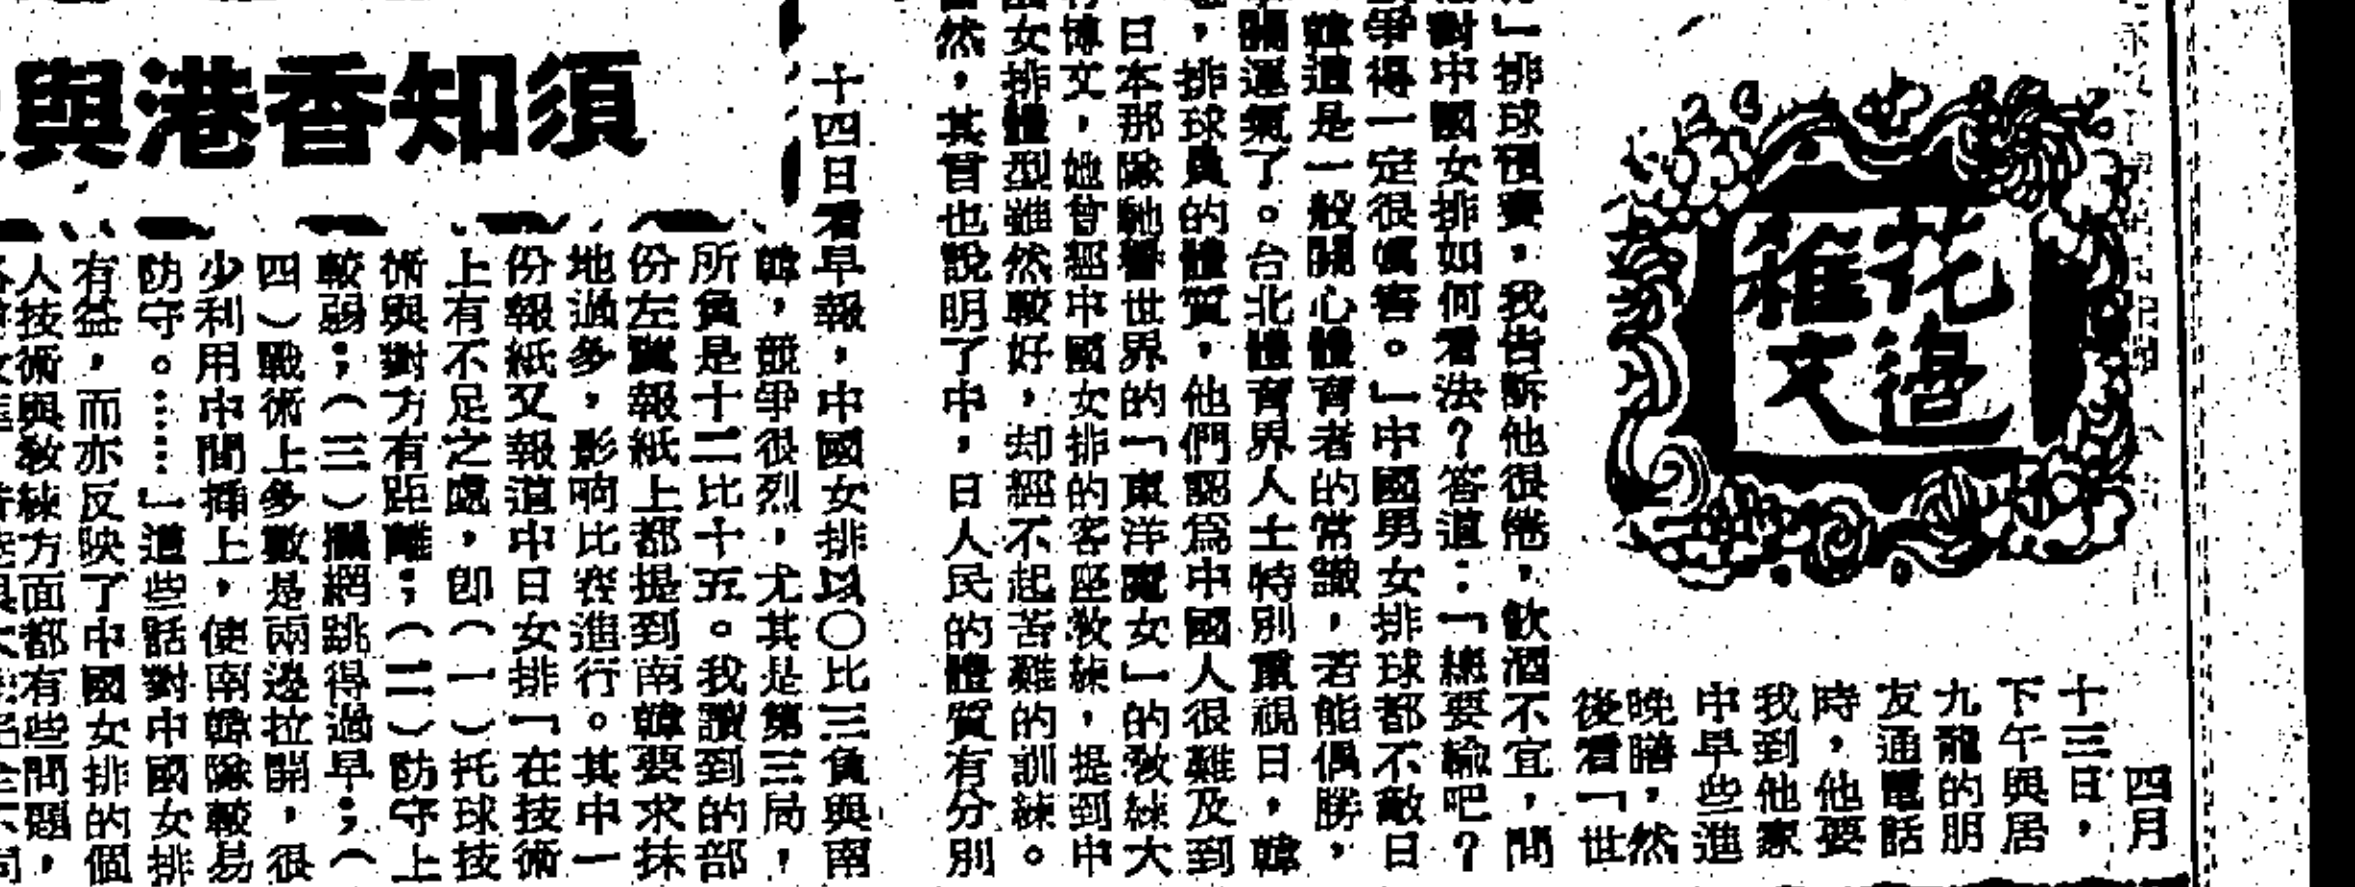 花邊
雅文
四月
十三日，
下午與居
九龍的朋
友通電話
時，他要
我到他家
中早些進
晚膳，然
後看「世
」排球預賽，我告訴他很倦，飲酒不宜，問
對中國女排如何看法？答道：「總要輸吧？
爭得一定很厲害。」中國男女排球都不敵日
韓這是一般關心體育者的常識，若能偶勝，
關運氣了。台北體育界人士特別重視日，韓
，排球員的體質，他們認爲中國人很難及到
日本那隊馳譽世界的「東洋魔女」的敎練大
博文，她曾經中國女排的客座敎練，提到中
女排體型雖然較好，却經不起苦難的訓練。
然，其言也說明了中，日人民的體質有分別
須知香港與
十四日看早報，中國女排以〇比三負與南
韓，競爭很烈，尤其是第三局，
所負是十二比十五。我讀到的部
份左翼報紙上都提到南韓要求抹
地過多，影响比賽進行。其中一
份報紙又報道中日女排「在技術
上有不足之處，卽（一）托球技
術與對方有距離；（二）防守上
較弱；（三）攔網跳得過早；（
四）戰術上多數是兩邊拉開，很
少利用中間插上，使南韓隊較易
防守。……」這些話對中國女排
有益，而亦反映了中國女排的個
人技術與敎練方面都有些問題，